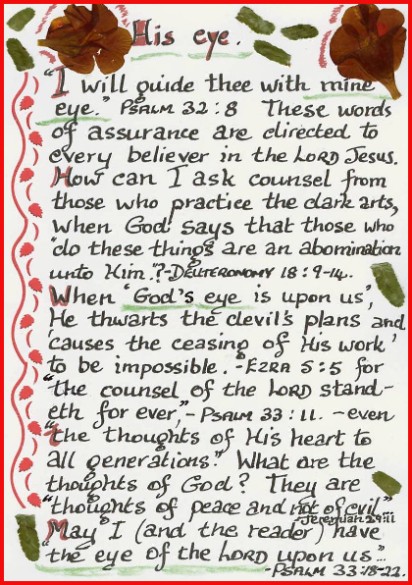 His eye.
"I will guide thee with mine
eye." PSALM 32:8 These words
of assurance are directed to
every believer in the LORD Jesus.
How can I ask counsel from
those who practice the dark arts,
when God says that those who
"do these things are an abomination
unto Him."?-DEUTERONOMY 18:9-14.
When 'God's eye is upon us',
He thwarts the devil's plans and
'causes the ceasing of His work'
to be impossible. -EZRA 5:5 for
"the counsel of the LORD stand-
eth for ever,"- PSALM 33:11. -even
"the thoughts of His heart to
all generations." What are the
thoughts of God? They are
"thoughts of peace and not of evil"
-Jeremiah 29:11
May I (and the reader) have
"the eye of the LORD upon us..."
-PSALM 33:18-22.